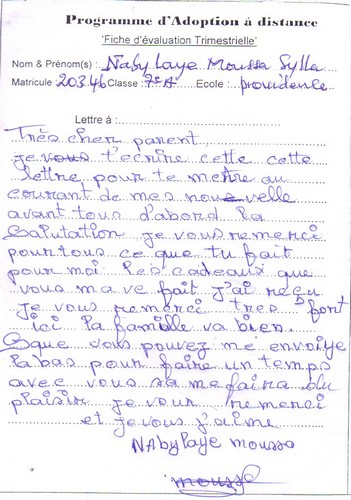 Programme d'Adoption à distance
'Fiche d'évaluation Trimestrielle'
Nom & Prénom(s) : Naby Laye Moussa Sylla
Matricule 20346 Classe : 7e A Ecole : providence
Lettre à :
Très cher parent
je vous t'ecrire cette cette
lettre pour te mettre au
courant de mes nouvelle
avant tous d'abord la
Salutation je vous remerci
pour tous ce que tu fait
pour moi les cadeaux que
vous m'ave fait j'ai reçu
je vous remerci tres fort
ici la famille va bien
que vous pouvez me envoiye
labas pour faire un temps
avec vous sa me faira du
plaisir je vour remerci
et je vous j'aime
NAby laye moussa
mousse